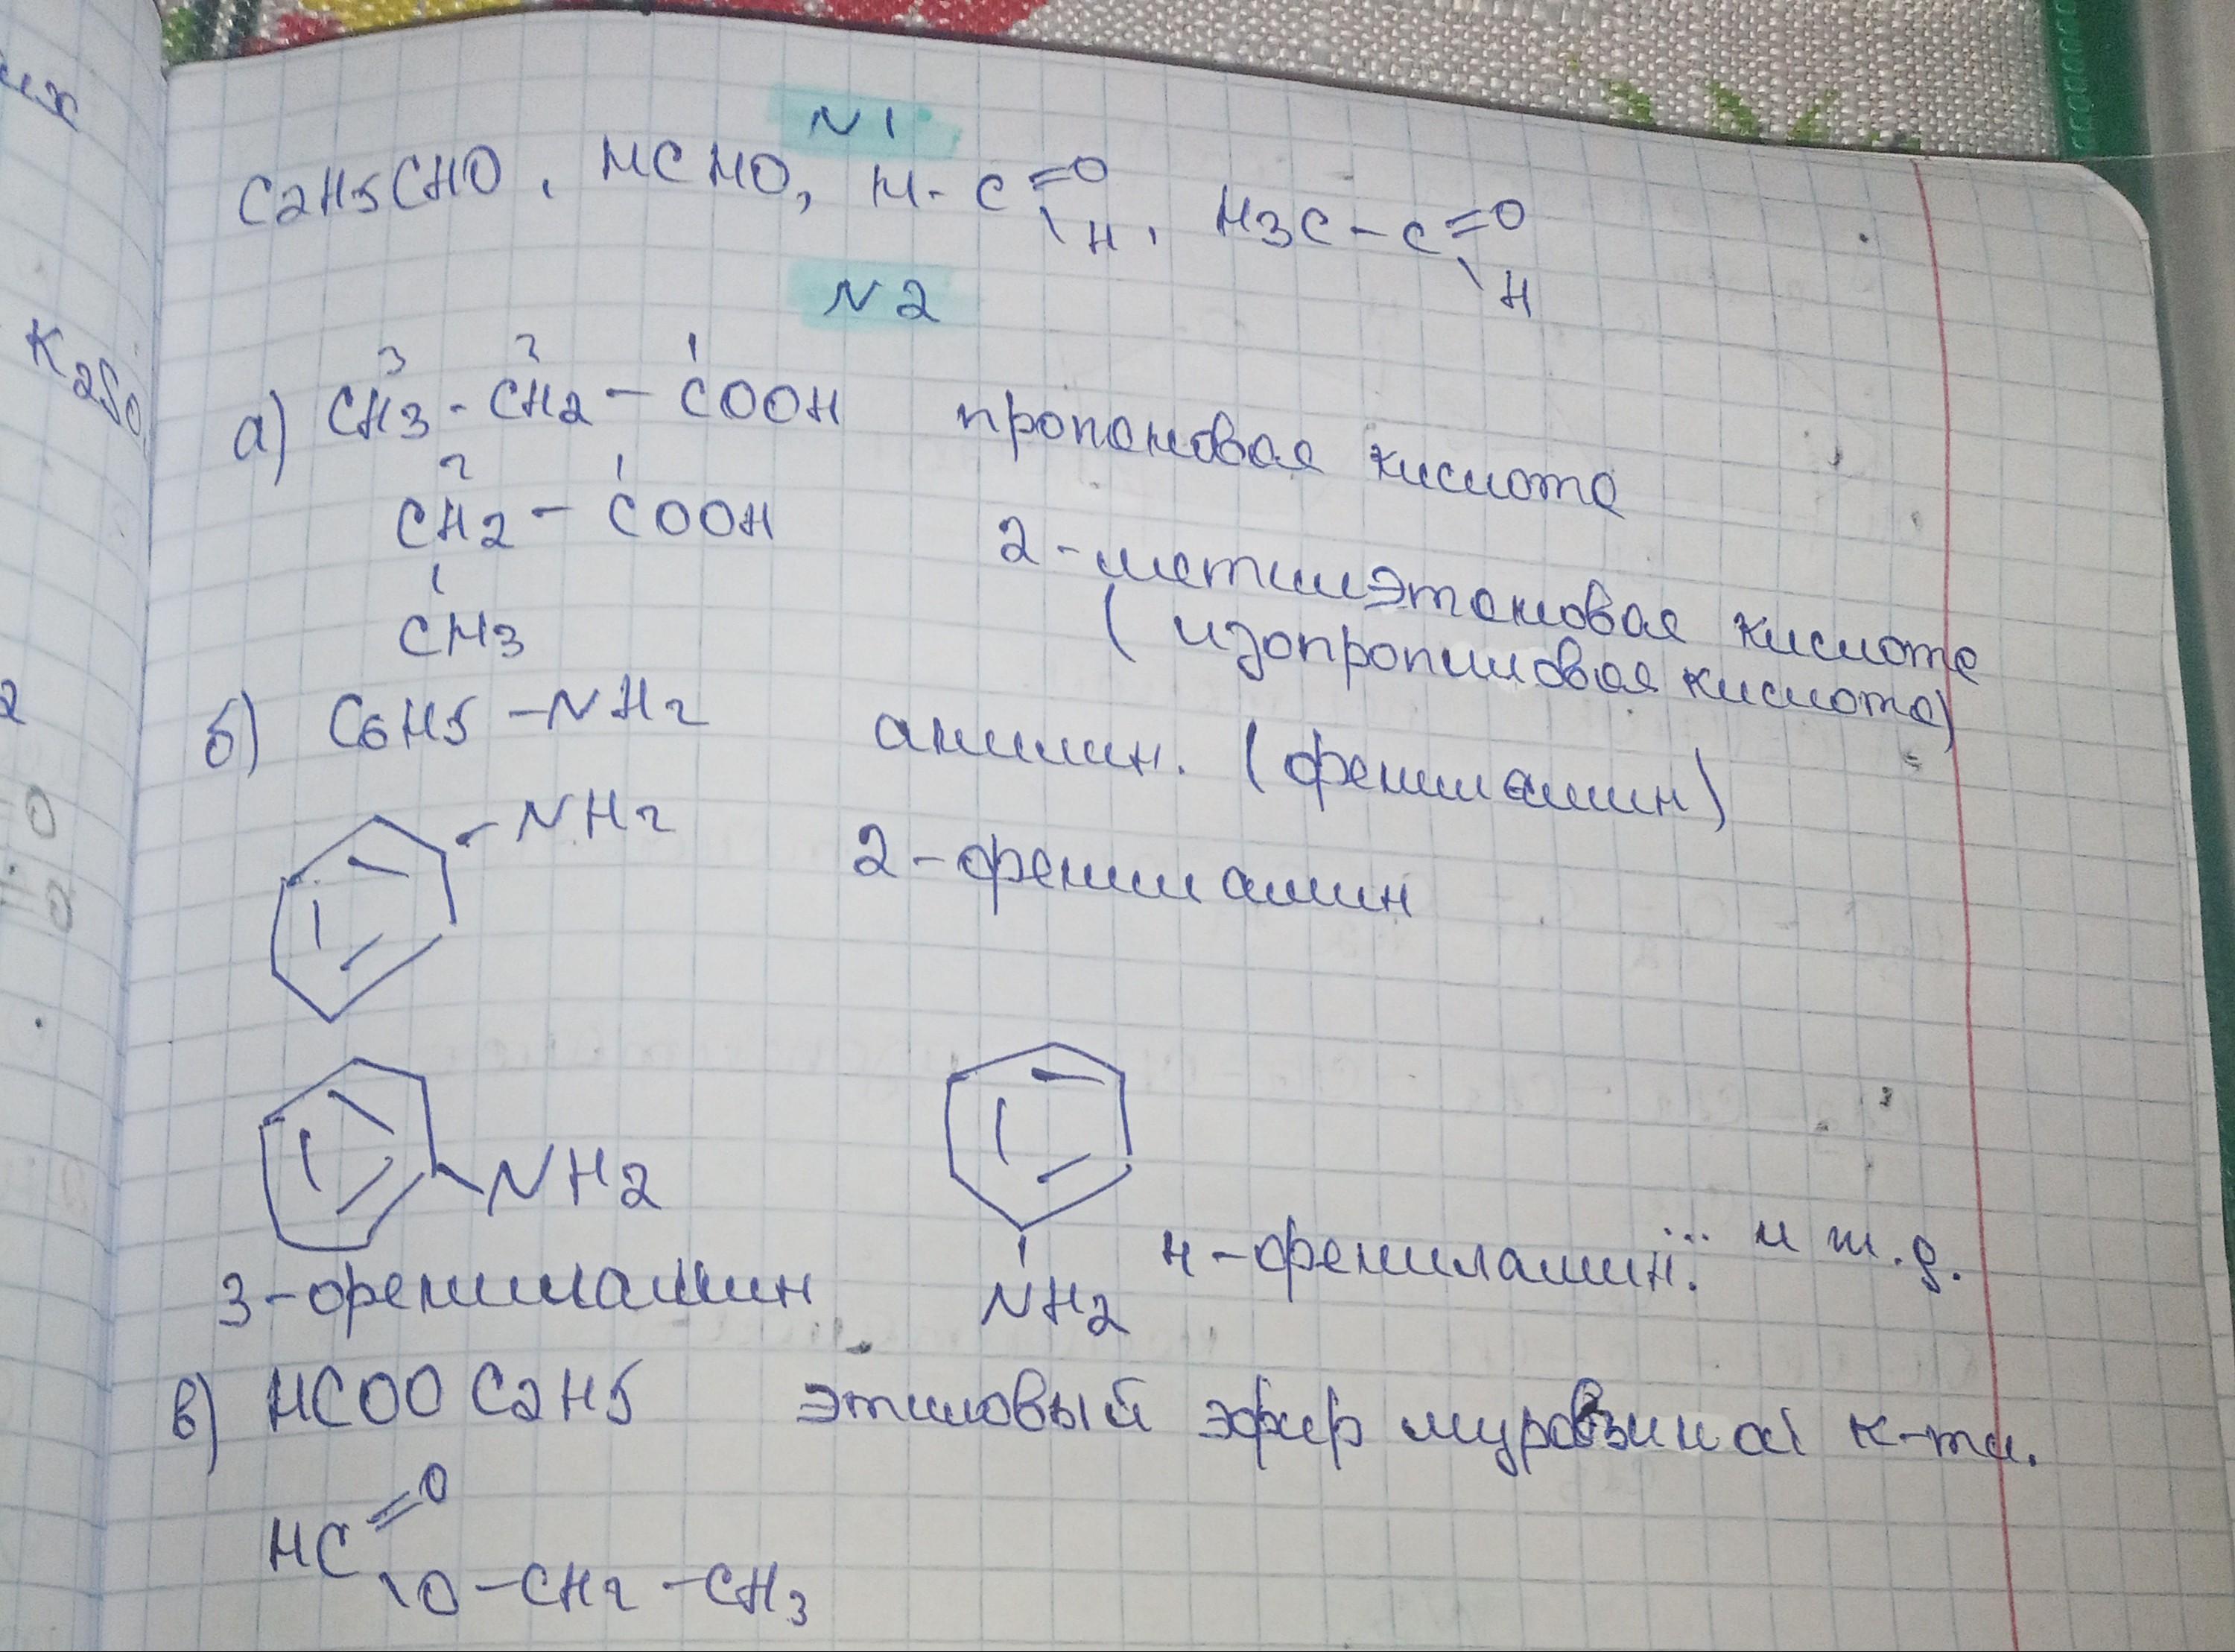 их
K2SO
2
N 1
C2H5CHO, HCHO, H-C=O\H, H3C-C=O\H
N 2
3 2 1
а) CH3-CH2-COOH пропановая кислота
2 1
CH2-COOH 2-метилэтановая кислота
CH3 (изопропиловая кислота)
б) C6H5-NH2 анилин. (фениламин)
-NH2 2-фениламин
NH2
3-фениламин NH2 4-фениламин... и т.д.
в) HCOOC2H5 этиловый эфир муровьиной к-ты.
HC=O
\O-CH2-CH3